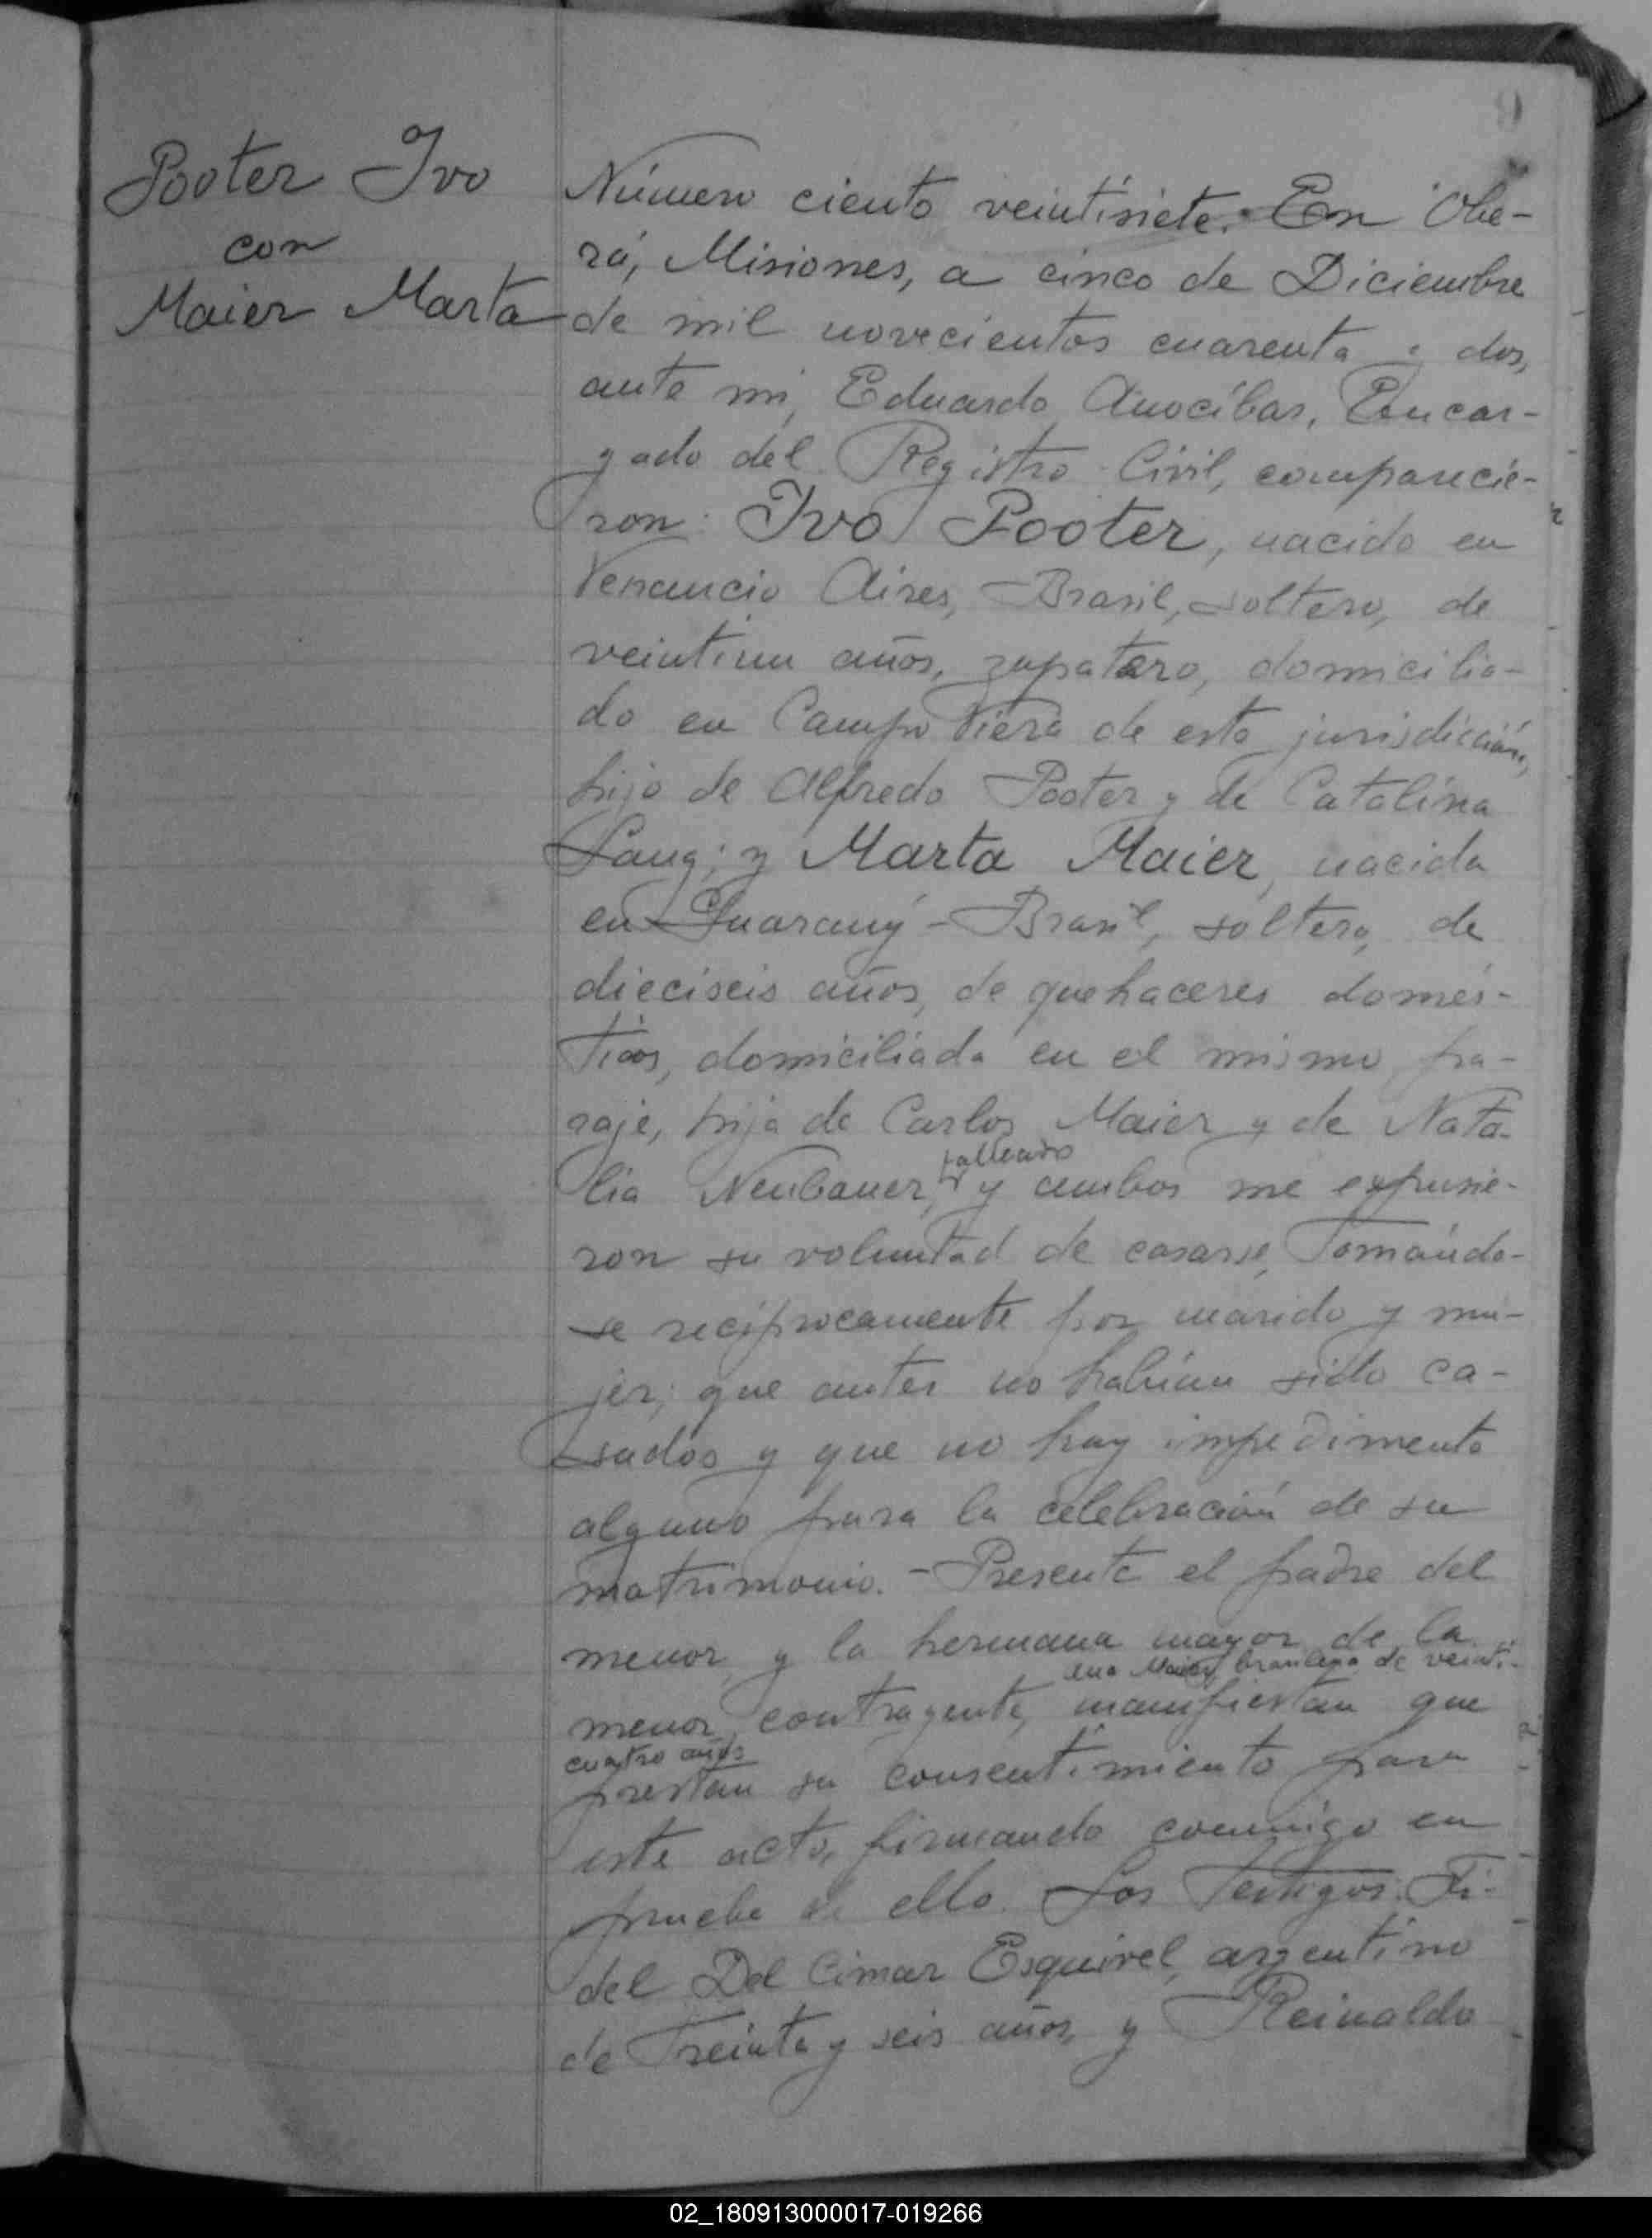 Pooter Ivo
con
Maier Marta
Número ciento veintisiete. En Obe-
rá, Misiones, a cinco de Diciembre
de mil novecientos cuarenta y dos,
ante mi, Eduardo Anocíbar, Encar-
gado del Registro Civil, comparecie-
ron: Ivo Pooter, nacido en
Venancio Aires, Brasil, soltero, de
veintiun años, zapatero, domicilia-
do en Campo Viera de esta jurisdicción,
hijo de Alfredo Pooter y de Catalina
Lang; y Marta Maier, nacida
en Guarany - Brasil, soltera, de
dieciseis años, de quehaceres domés-
ticos, domiciliada en el mismo pa-
raje, hija de Carlos Maier y de Nata-
fallecidos
lia Neubauer, y ambos me expusie-
ron su voluntad de casarse, tomándo-
se recíprocamente por marido y mu-
jer; que antes no habían sido ca-
sados y que no hay impedimento
alguno para la celebración de su
matrimonio. - Presente el padre del
menor, y la hermana mayor de la
Maier, brasilera de veinti-
menor contrayente, manifiestan que
cuatro años
prestan su consentimiento para
este acto, firmando conmigo en
prueba de ello. Los Testigos: Fi-
del Del Cimar Esquivel, argentino
de treinta y seis años, y Reinaldo
02_180913000017-019266